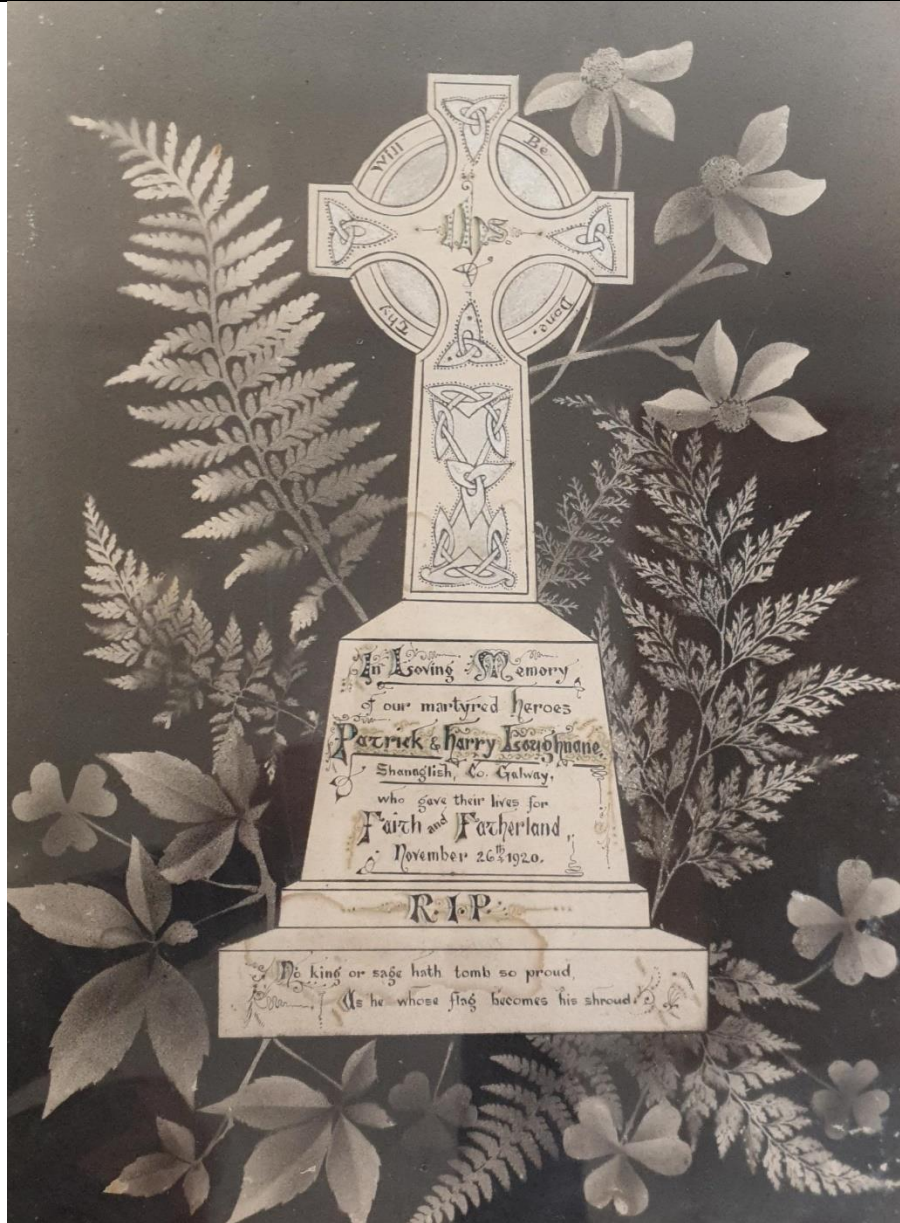 Thy Will Be Done.
IHS
In Loving Memory
of our martyred heroes
Patrick & Harry Loughnane
Shanaglish, Co. Galway,
who gave their lives for
Faith and Fatherland,
November 26th 1920.
R.I.P.
No king or sage hath tomb so proud,
As he whose flag becomes his shroud.